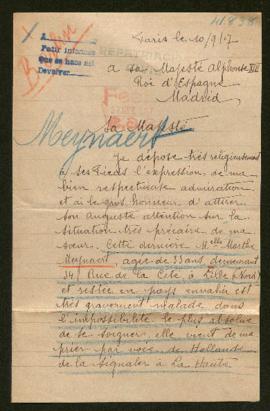 41838
Paris le 10/9/17
A sa Majesté Alphonse XIII
Roi d'Espagne
Madrid
Pedir informes
que se hace
REPATRIA
Meynaert
Sa Majesté
Je dépose très religieusement
à ses Pieds l'expression de ma
bien respectueuse admiration
et ai le grand honneur d'attirer
son Auguste attention sur la
situation très précaire de ma
sœur. Cette dernière Melle Marthe
Meynaert, agée de 33 ans, demeurant
34, Rue de la à Lille (Nord)
et restée en pays envahi est
très gravement malade dans
l'impossibilité la plus absolue
de se soigner, elle vient de me
prier par voie de Hollande
de la signaler à La Haute